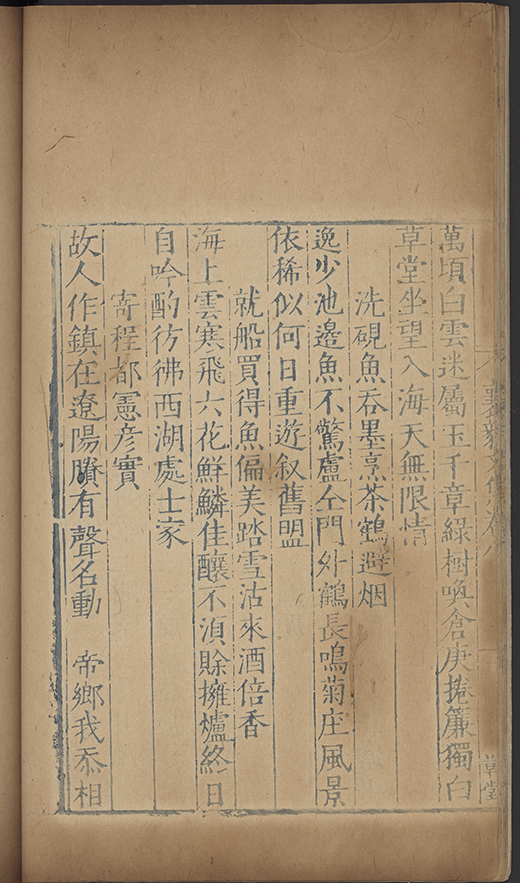 萬頃白雲迷屬玉千章綠樹喚倉庚捲簾獨白
草堂坐望入海天無限情
洗硯魚吞墨烹茶鶴避烟
逸少池邊魚不驚盧仝門外鶴長鳴菊庄風景
依稀似何日重遊叙舊盟
就船買得魚偏美踏雪沽來酒倍香
海上雲寒飛六花鮮鱗佳釀不湏賒擁爐終日
自吟酌彷彿西湖處士家
寄程都憲彦實
故人作鎮在遼陽賸有聲名動 帝鄉我忝相
草堂